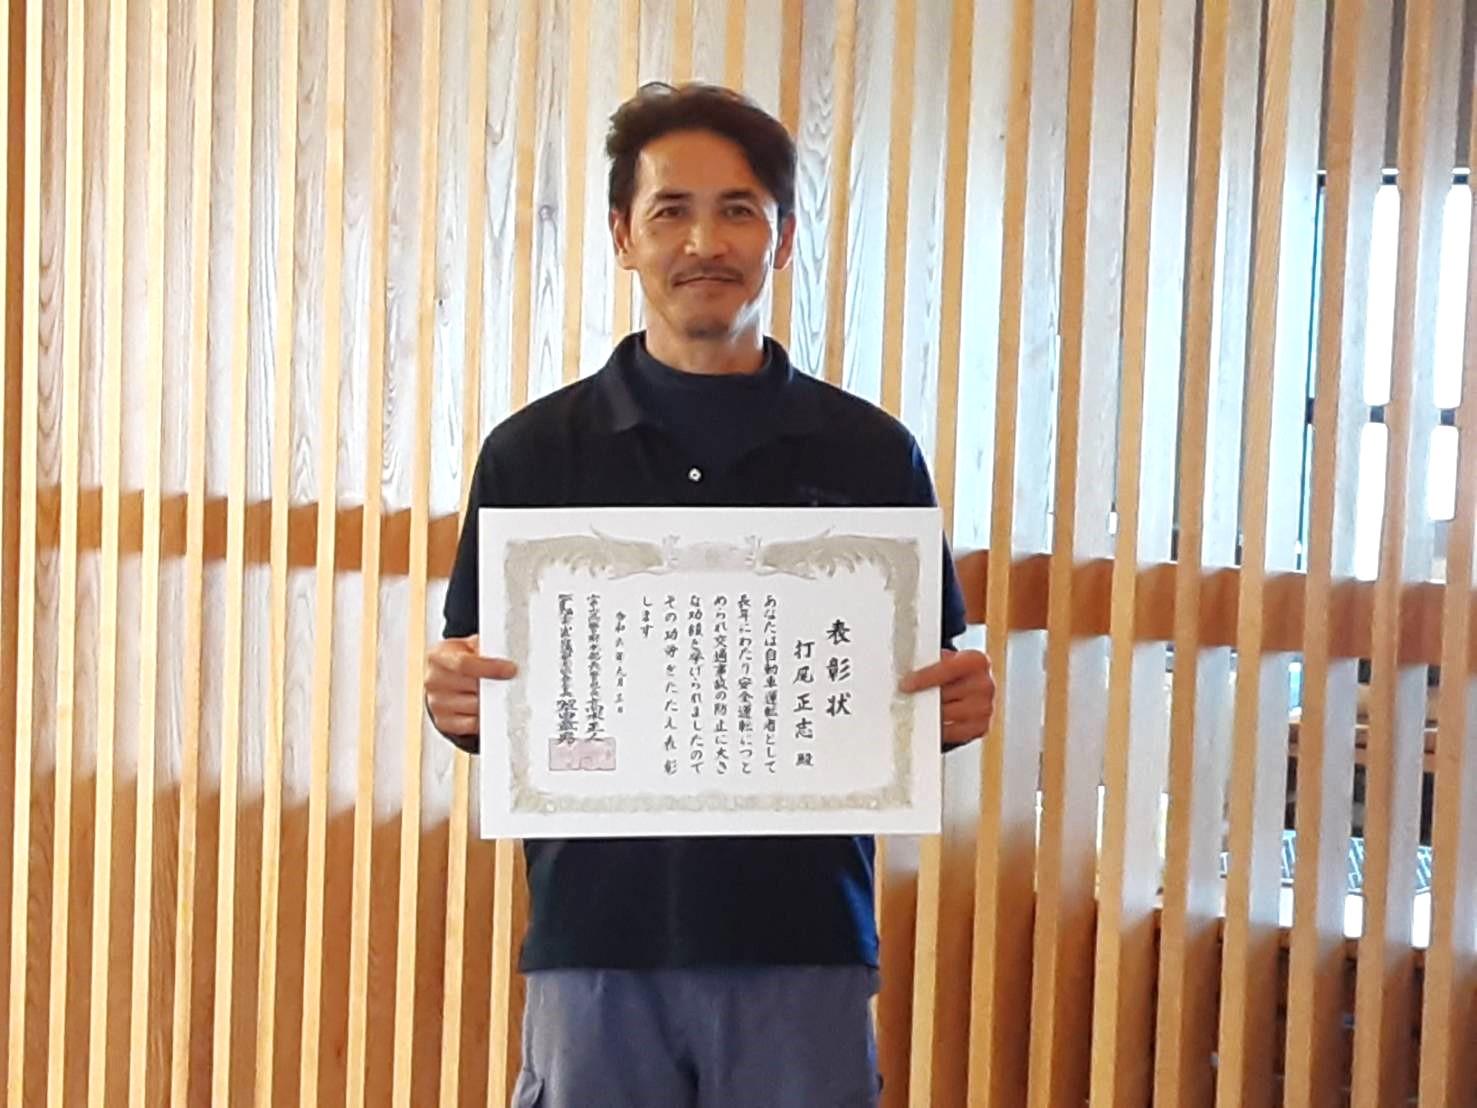 表彰状
打尾正志 殿
あなたは自動車運転者として
長年にわたり安全運転につと
められ交通事故の防止に大き
な功績を挙げられましたので
その功労をたたえ表彰
します
令和六年九月三日